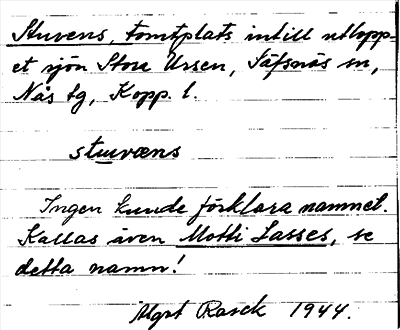 Stuvens, tomtplats intill utlopp-
et sjön Stora Ursen, Säfsnäs sn,
Nås tg, Kopp. l.
stuvœns
Ingen kunde förklara namnet.
Kallas även Motti Lasses, se
detta namn!
Algot Rasck 1944.